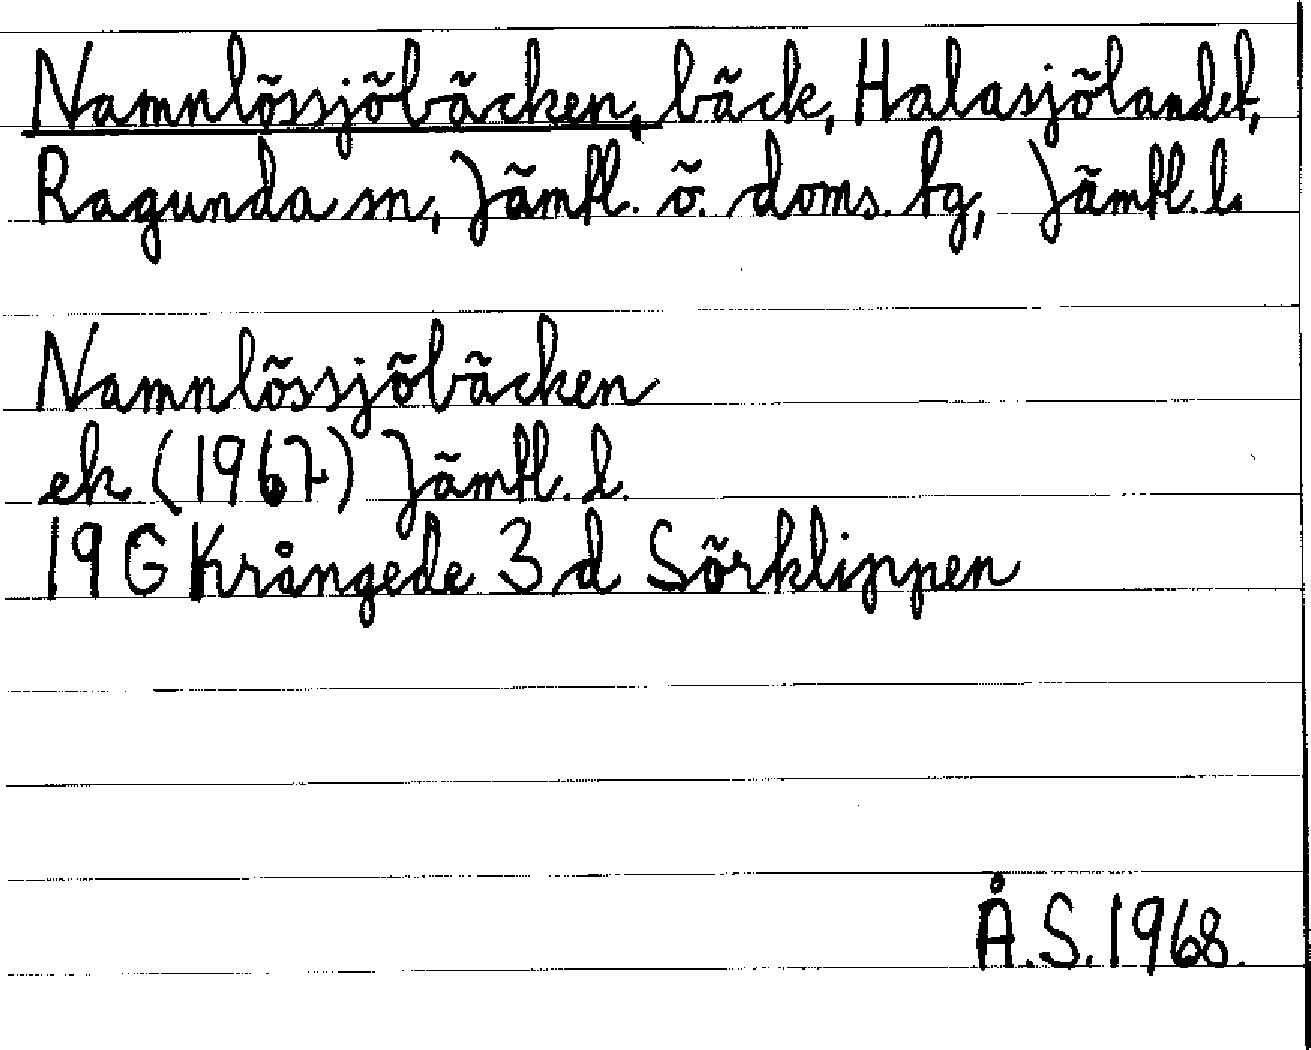 Namnlössjöbäcken, bäck, Halasjölandet,
Ragunda sn, Jämtl. ö. doms. tg, Jämtl. l.
Namnlössjöbäcken
ek (1967) Jämtl. l.
19 G Krångede 3 d Sörklippen
Å.S. 1968.